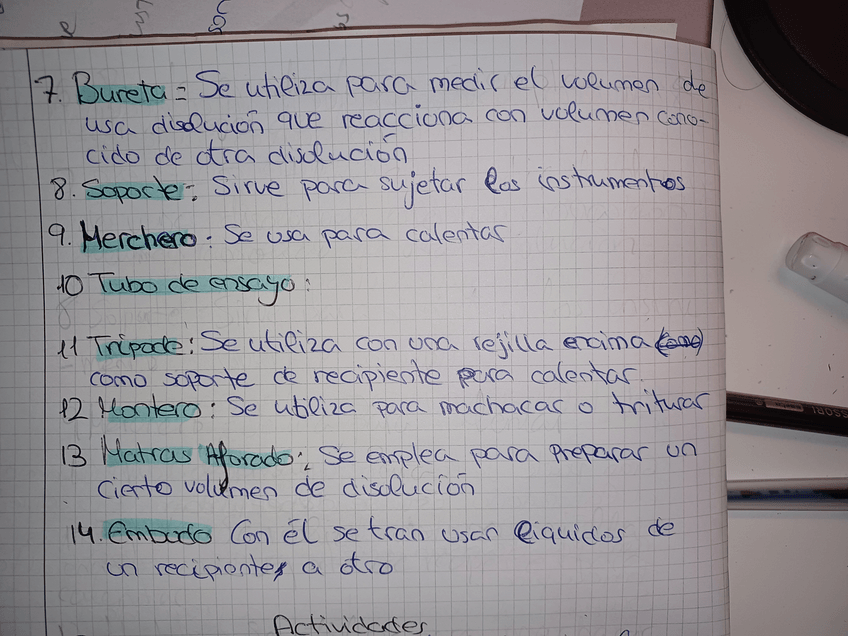 7. Bureta = Se utiliza para medir el volumen de
usa disolución que reacciona con volumen cono-
cido de otra disolución
8. Soporte: Sirve para sujetar los instrumentos
9. Merchero: Se usa para calentar
10 Tubo de ensayo:
11 Tripode: Se utiliza con una rejilla encima
como soporte de recipiente para calentar.
12 Montero: Se utiliza para machacar o triturar
13 Matras Aforado: Se emplea para preparar un
cierto volumen de disolución
14. Embado Con él se tran usan liquidos de
un recipiente a otro
Actividades